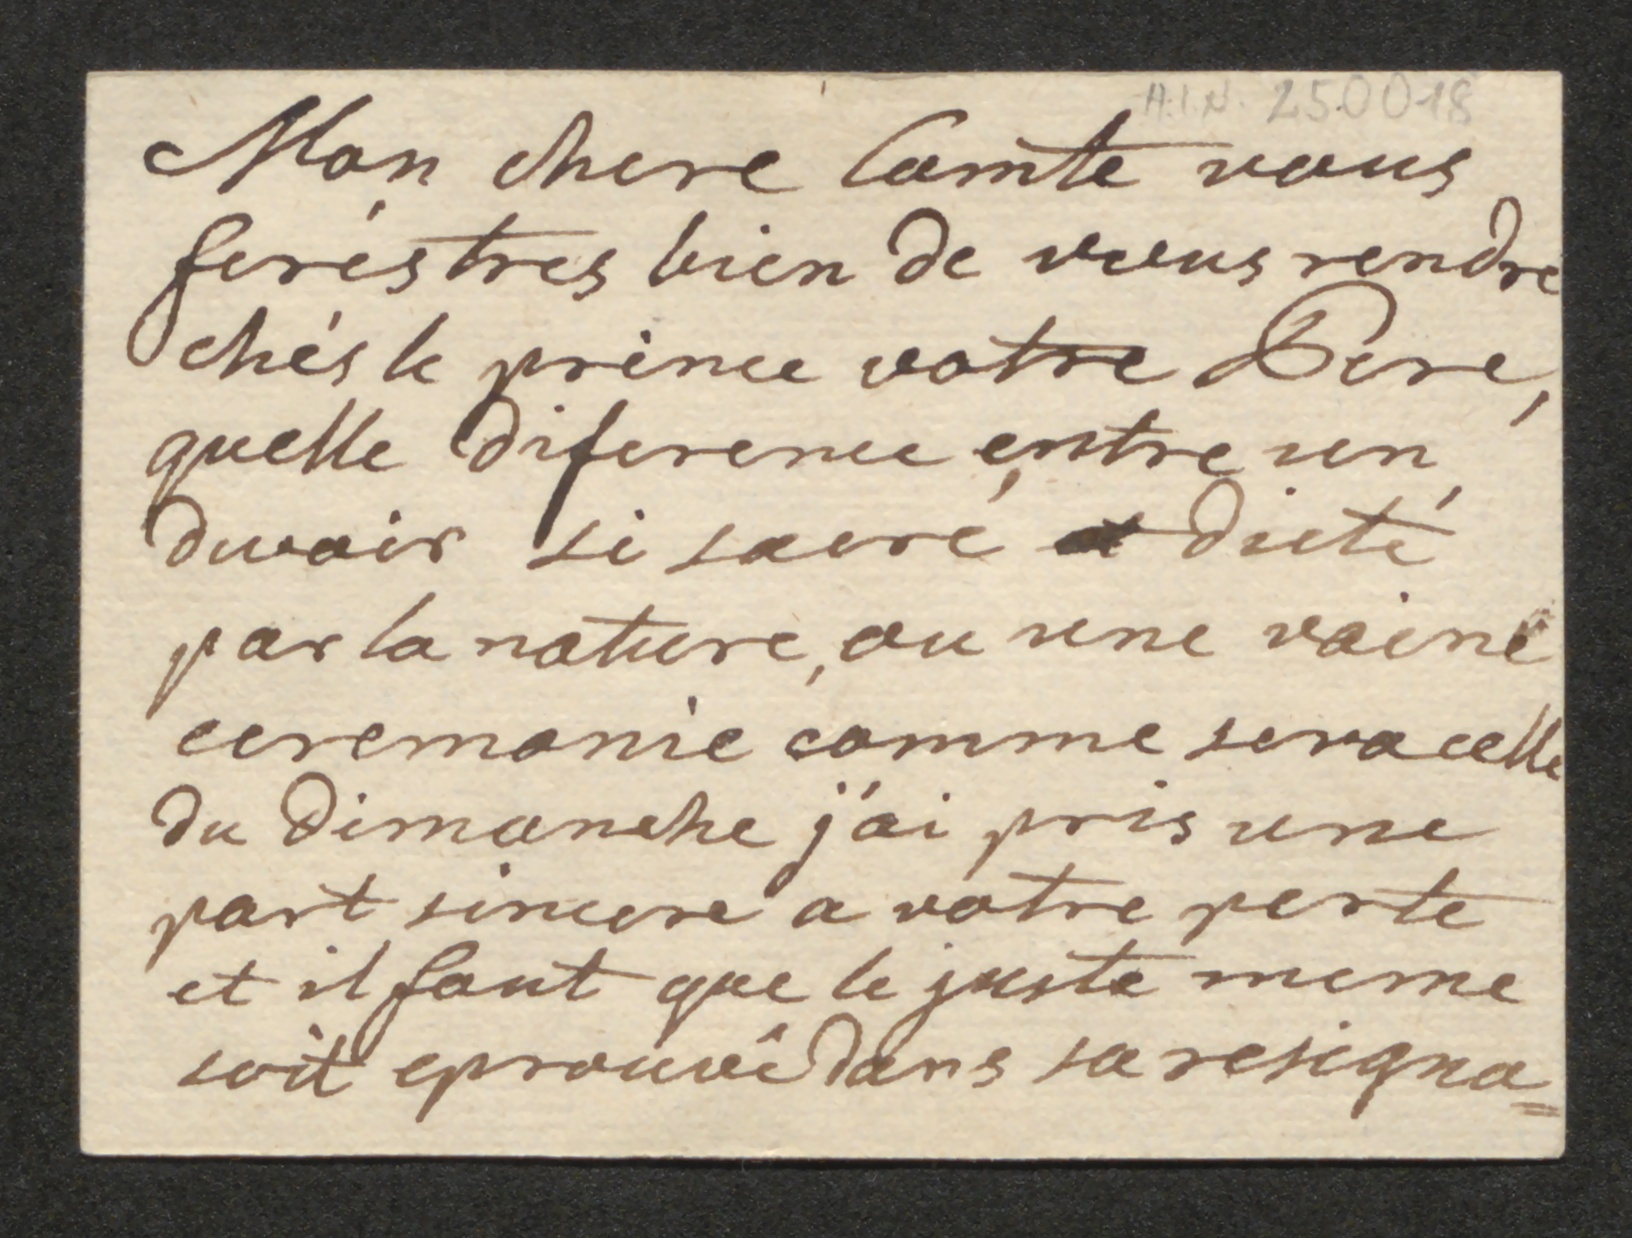 H.I.N. 250018
Mon chere Comte vous
ferés tres bien de vous rendre
chés le prince votre Pere,
quelle diference entre un
devoir si sacré et dicté
par la nature, ou une vaine
ceremonie comme sera celle
du Dimanche j'ai pris une
part sincere a votre perte
et il faut que le juste meme
soit eprouvé dans sa resigna=